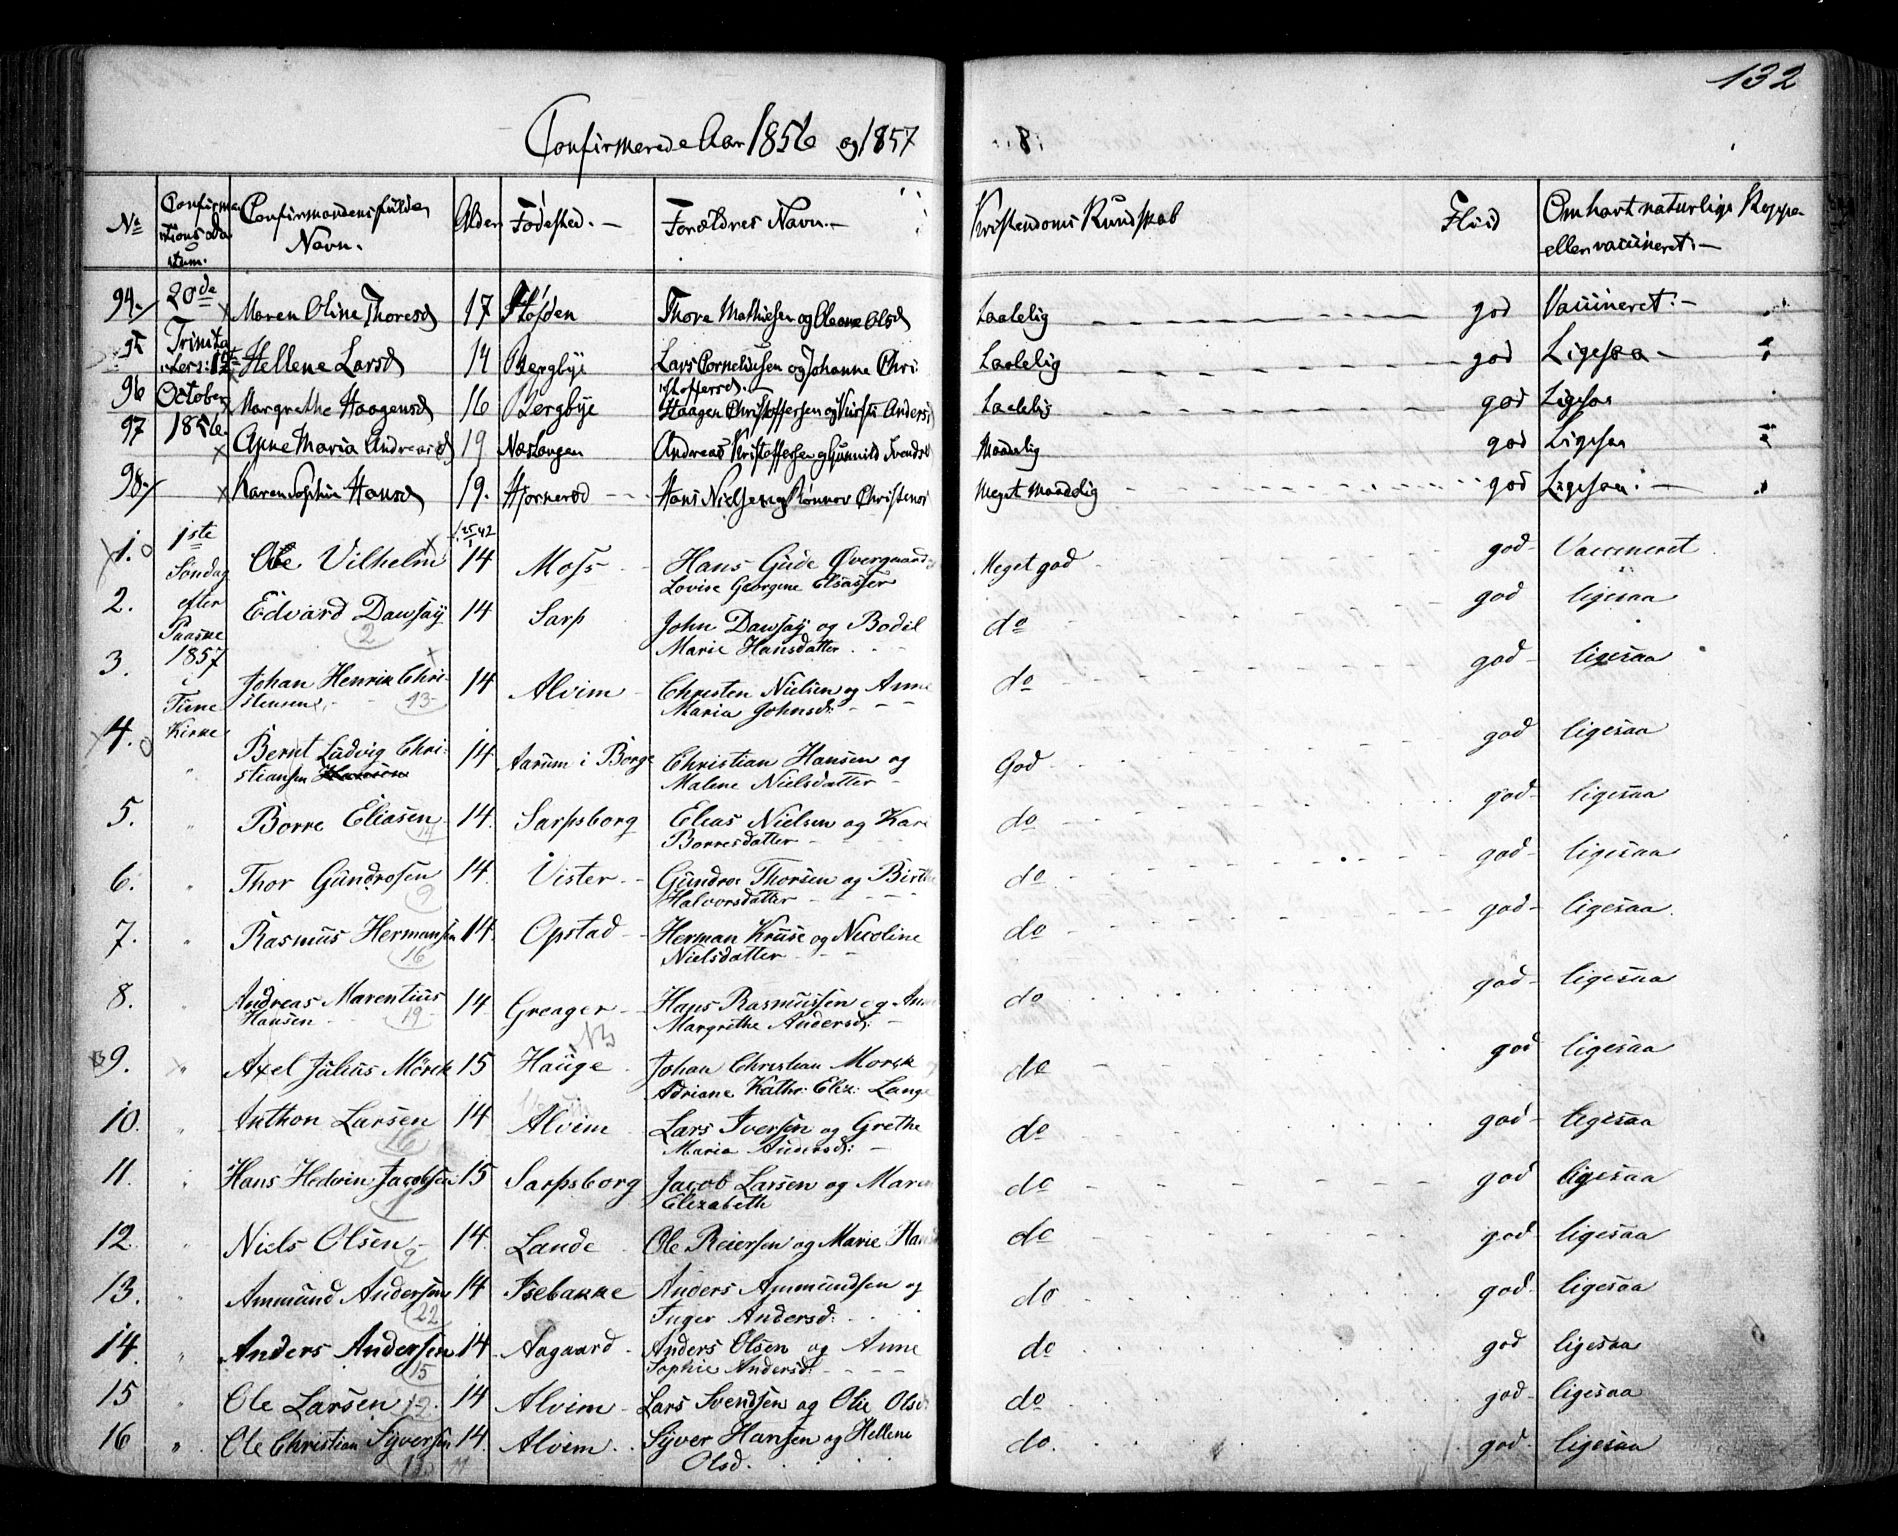 132
Confirmerede Aar 1856 og 1857
No Confirmations Datum. Confirmandens fulde Navn. Alder Fødested. Forældres Navn. Kristendoms Kundskab Flid Om havt naturlige Kopper eller vaccineret.
94. 20de Maren Oline Thoresd 17 Thore Mathiesen og Oleane Olsd Laalelig god Vaccineret
95 Trinita Hellene Larsd 14 Bergbye Lars Corneliusen og Johanne Chri
stoffersd. Laalelig god Ligesaa
96 October Margrethe Haagensd 16 Bergbye Haagen Christoffersen og Kirsti Andersd Laalelig god Ligesaa
97 1856. Anne Maria Andreasd 19 Næslangen Andreas Kristoffersen og Gunnild Svendsd Maadelig god Ligesaa
98. Karen Sophie Hansd 19. Hjornerød Hans Nielsen og Ronnov Christensd Meget maadelig god Ligesaa
1. 1ste Søndag Ole Vilhelm 14 Moss Hans Gude Øvergaard
Lovise Georgine Elsasser Meget god god Vaccineret
2. efter Paaske Edvard Dawsay 14 Sarp John Dawsay og Bodil
Marie Hansdatter do god ligesaa
2
3. 1857 i Tune Johan Henrik Chri-
stensen 14 Alvim Christen Nielsen og Anne
Maria Johnsd: do god ligesaa
13
4. Kirke Bernt Ludvig Chri-
stiansen 14 Aarum i Borge Christian Hansen og
Malene Nielsdatter God god ligesaa
5. " Borre Eliasen 14. Sarpsborg Elias Nielsen og Kari
Borresdatter do god ligesaa
14
6. " Thor Gundrosen 14. Vister Gundro Thorsen og Birthe
Halvorsdatter do god ligesaa
9
7. " Rasmus Hermansen 14. Opstad Herman Kruse og Nicoline
Nielsdatter do god ligesaa
16
8. " Andreas Marentius
Hansen 14 Greager Hans Rasmussen og Anne
Margrethe Andersd: do god ligesaa
19
NB
9. " Axel Julius Mörck 15 Hauge Johan Christian Morck
Adriane Kathr: Eliz: Lange do god ligesaa
10. " Anthon Larsen 14 Alvim Lars Iversen og Grethe
Maria Andersd: do god ligesaa
16
11. " Hans Hedvin Jacobsen 15 Sarpsborg Jacob Larsen og Maren
Elizabeth do god ligesaa
1
12. " Niels Olsen 14. Lande Ole Reiersen og Marie Hansd do god ligesaa
13. " Ammund Andersen 14 Isebakke Anders Ammundsen og
Inger Andersd: do god ligesaa
22
14. " Anders Andersen 14 Aagaard Anders Olsen og Anne
Sophie Andersd: do god ligesaa
15
15 " Ole Larsen 14 Alvim Lars Svendsen og Olie Olsd: do god ligesaa
12
16 " Ole Christian Syversen 14. Alvim Syver Hansen og Hellene
Olsd. do. god ligesaa